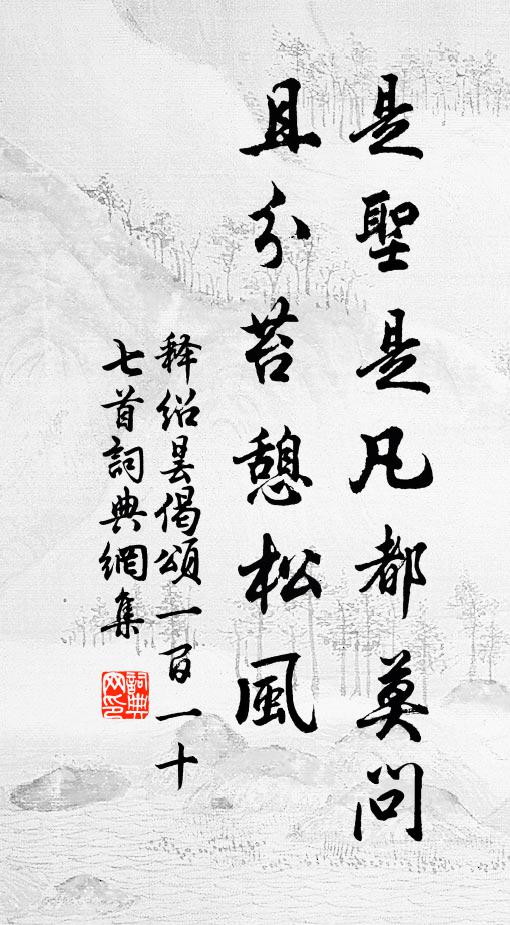 是聖是凡都莫問
且分苔憩松風
释绍昙偈頌一百一十
七首詞典網集
詞典
网印